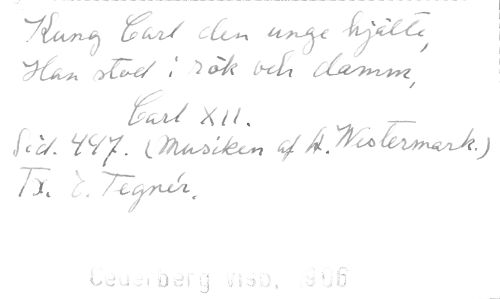 Kung Carl den unge hjälte,
Han stod i rök och damm,
Carl XII.
Sid. 447. (Musiken af H. Westermark.)
Tx. E. Tegnér.
Cederberg Visb, 1906